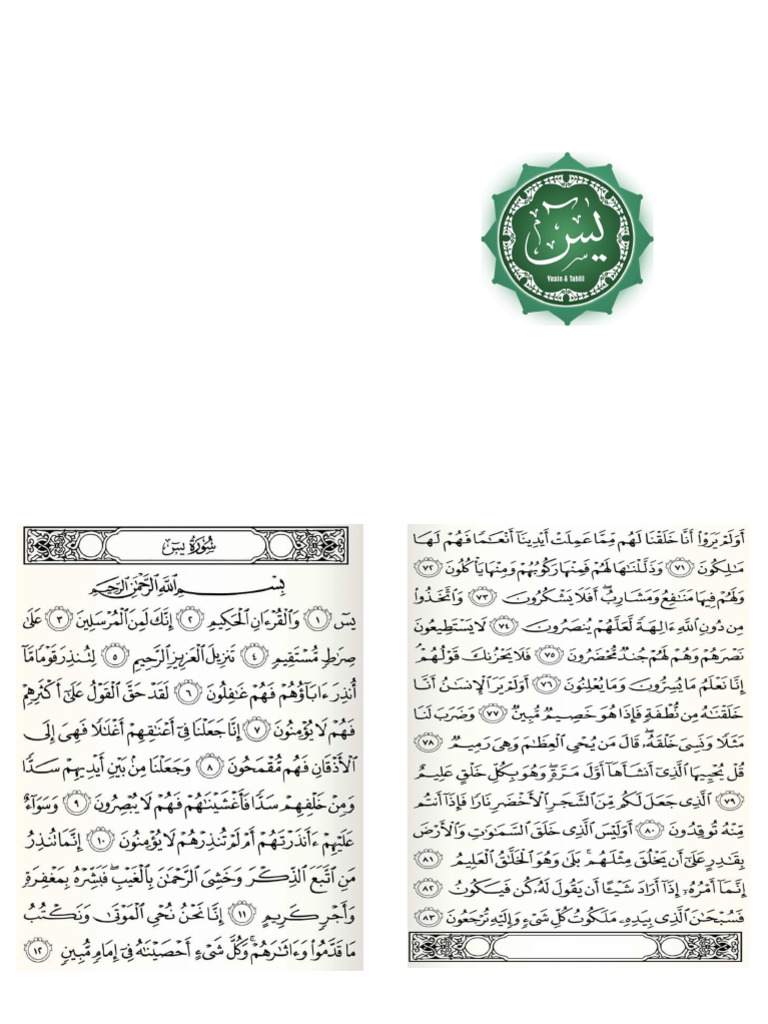 يس
Yasin & Tahlil
سُورَةُ يسٓ
بِسْمِ ٱللَّهِ ٱلرَّحْمَٰنِ ٱلرَّحِيمِ
يسٓ ١ وَٱلْقُرْءَانِ ٱلْحَكِيمِ ٢ إِنَّكَ لَمِنَ ٱلْمُرْسَلِينَ ٣ عَلَىٰ
صِرَٰطٍ مُّسْتَقِيمٍ ٤ تَنزِيلَ ٱلْعَزِيزِ ٱلرَّحِيمِ ٥ لِتُنذِرَ قَوْمًا مَّآ
أُنذِرَ ءَابَآؤُهُمْ فَهُمْ غَٰفِلُونَ ٦ لَقَدْ حَقَّ ٱلْقَوْلُ عَلَىٰٓ أَكْثَرِهِمْ
فَهُمْ لَا يُؤْمِنُونَ ٧ إِنَّا جَعَلْنَا فِىٓ أَعْنَٰقِهِمْ أَغْلَٰلًا فَهِىَ إِلَى
ٱلْأَذْقَانِ فَهُم مُّقْمَحُونَ ٨ وَجَعَلْنَا مِنۢ بَيْنِ أَيْدِيهِمْ سَدًّا
وَمِنْ خَلْفِهِمْ سَدًّا فَأَغْشَيْنَٰهُمْ فَهُمْ لَا يُبْصِرُونَ ٩ وَسَوَآءٌ
عَلَيْهِمْ ءَأَنذَرْتَهُمْ أَمْ لَمْ تُنذِرْهُمْ لَا يُؤْمِنُونَ ١٠ إِنَّمَا تُنذِرُ
مَنِ ٱتَّبَعَ ٱلذِّكْرَ وَخَشِىَ ٱلرَّحْمَٰنَ بِٱلْغَيْبِ ۖ فَبَشِّرْهُ بِمَغْفِرَةٍ
وَأَجْرٍ كَرِيمٍ ١١ إِنَّا نَحْنُ نُحْىِ ٱلْمَوْتَىٰ وَنَكْتُبُ
مَا قَدَّمُوا۟ وَءَاثَٰرَهُمْ ۚ وَكُلَّ شَىْءٍ أَحْصَيْنَٰهُ فِىٓ إِمَامٍ مُّبِينٍ ١٢
أَوَلَمْ يَرَوْا۟ أَنَّا خَلَقْنَا لَهُم مِّمَّا عَمِلَتْ أَيْدِينَآ أَنْعَٰمًا فَهُمْ لَهَا
مَٰلِكُونَ ٧١ وَذَلَّلْنَٰهَا لَهُمْ فَمِنْهَا رَكُوبُهُمْ وَمِنْهَا يَأْكُلُونَ ٧٢
وَلَهُمْ فِيهَا مَنَٰفِعُ وَمَشَارِبُ ۖ أَفَلَا يَشْكُرُونَ ٧٣ وَٱتَّخَذُوا۟
مِن دُونِ ٱللَّهِ ءَالِهَةً لَّعَلَّهُمْ يُنصَرُونَ ٧٤ لَا يَسْتَطِيعُونَ
نَصْرَهُمْ وَهُمْ لَهُمْ جُندٌ مُّحْضَرُونَ ٧٥ فَلَا يَحْزُنكَ قَوْلُهُمْ ۘ
إِنَّا نَعْلَمُ مَا يُسِرُّونَ وَمَا يُعْلِنُونَ ٧٦ أَوَلَمْ يَرَ ٱلْإِنسَٰنُ أَنَّا
خَلَقْنَٰهُ مِن نُّطْفَةٍ فَإِذَا هُوَ خَصِيمٌ مُّبِينٌ ٧٧ وَضَرَبَ لَنَا
مَثَلًا وَنَسِىَ خَلْقَهُۥ ۖ قَالَ مَن يُحْىِ ٱلْعِظَٰمَ وَهِىَ رَمِيمٌ ٧٨
قُلْ يُحْيِيهَا ٱلَّذِىٓ أَنشَأَهَآ أَوَّلَ مَرَّةٍ ۖ وَهُوَ بِكُلِّ خَلْقٍ عَلِيمٌ
٧٩ ٱلَّذِى جَعَلَ لَكُم مِّنَ ٱلشَّجَرِ ٱلْأَخْضَرِ نَارًا فَإِذَآ أَنتُم
مِّنْهُ تُوقِدُونَ ٨٠ أَوَلَيْسَ ٱلَّذِى خَلَقَ ٱلسَّمَٰوَٰتِ وَٱلْأَرْضَ
بِقَٰدِرٍ عَلَىٰٓ أَن يَخْلُقَ مِثْلَهُم ۚ بَلَىٰ وَهُوَ ٱلْخَلَّٰقُ ٱلْعَلِيمُ ٨١
إِنَّمَآ أَمْرُهُۥٓ إِذَآ أَرَادَ شَيْـًٔا أَن يَقُولَ لَهُۥ كُن فَيَكُونُ ٨٢
فَسُبْحَٰنَ ٱلَّذِى بِيَدِهِۦ مَلَكُوتُ كُلِّ شَىْءٍ وَإِلَيْهِ تُرْجَعُونَ ٨٣